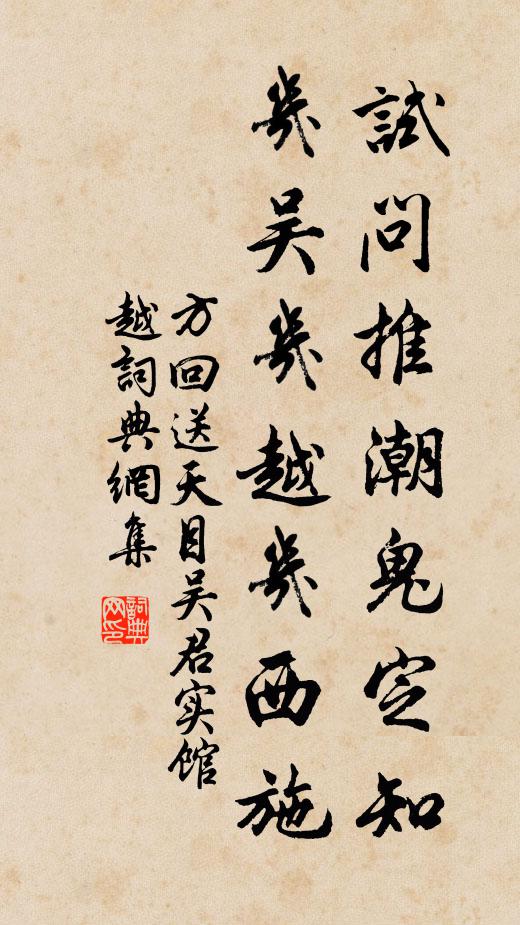 試問推潮鬼定知
幾吳幾越幾西施
方回送天目吴君实馆
越詞典網集
詞典网印